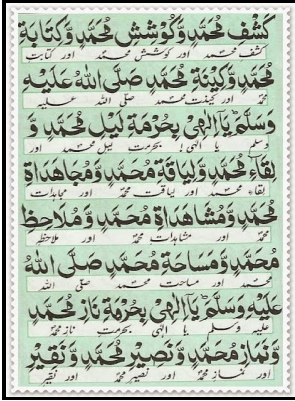 كَشْفِ مُحَمَّدٍ وَّكُوْشِشِ مُحَمَّدٍ وَّكِتَابَةِ
کشف محمد اور کوشش محمد اور کتابت
مُحَمَّدٍ وَّكَيْنَةِ مُحَمَّدٍ صَلَّى اللهُ عَلَيْهِ
محمد اور کینت محمد صلی اللہ علیہ
وَسَلَّمَ يَا اِلٰهِىْ بِحُرْمَةِ لَيْلِ مُحَمَّدٍ وَّ
وسلم یا الٰہی بحرمت لیل محمد اور
لِقَاءِ مُحَمَّدٍ وَّلِيَاقَةِ مُحَمَّدٍ وَّمُجَاهَدَاةِ
لقاء محمد اور لیاقت محمد اور مجاہدات
مُحَمَّدٍ وَّمُشَاهَدَاةِ مُحَمَّدٍ وَّمُلَاحِظِ
محمد اور مشاہدات محمد اور ملاحظہ
مُحَمَّدٍ وَّمَسَاحَةِ مُحَمَّدٍ صَلَّى اللهُ
محمد اور مساحت محمد صلی اللہ
عَلَيْهِ وَسَلَّمَ يَا اِلٰهِىْ بِحُرْمَةِ نَازِ مُحَمَّدٍ
علیہ وسلم یا الٰہی بحرمت ناز محمد
وَّنَمَازِ مُحَمَّدٍ وَّنَصِيْرِ مُحَمَّدٍ وَّنَقِيْرِ
اور نماز محمد اور نصیر محمد اور نقیر